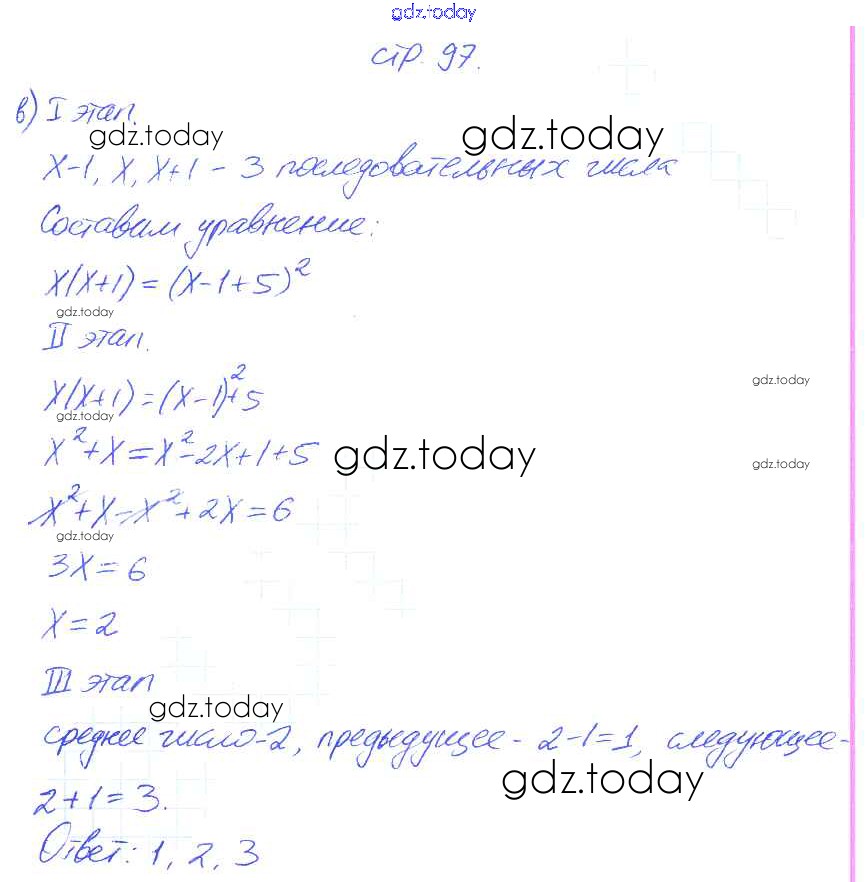 gdz.today
стр. 97.
в) I этап.
gdz.today gdz.today
x-1, x, x+1 - 3 последовательных числа
Составим уравнение:
x(x+1) = (x-1+5)²
gdz.today
II этап.
gdz.today
x(x+1) = (x-1)²+5
gdz.today
x²+x=x²-2x+1+5 gdz.today gdz.today
x²+x-x²+2x=6
gdz.today
3x=6
x=2
III этап
gdz.today
среднее число-2, предыдущее- 2-1=1, следующее-
gdz.today
2+1=3.
Ответ: 1, 2, 3